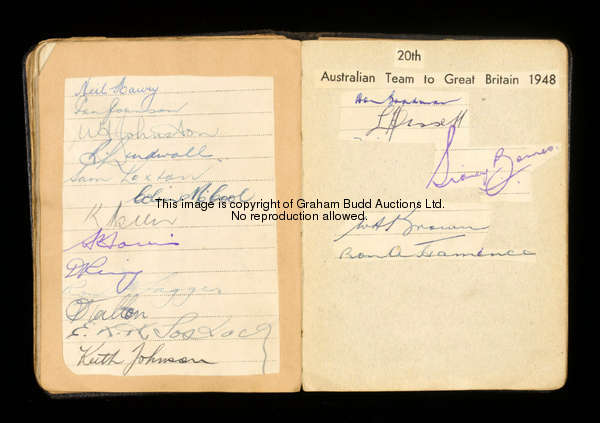 Neil Harvey
Ian Johnson
W A Johnston
R Lindwall
Sam Loxton
Colin McCool
K Miller
A R Morris
D Ring
Ron Saggers
D Tallon
E. R. H. Toshack
Keith Johnson
20th
Australian Team to Great Britain 1948
Don Bradman
L Hassett
Sidney Barnes
W A Brown
Ron A Hamence
This image is copyright of Graham Budd Auctions Ltd.
No reproduction allowed.